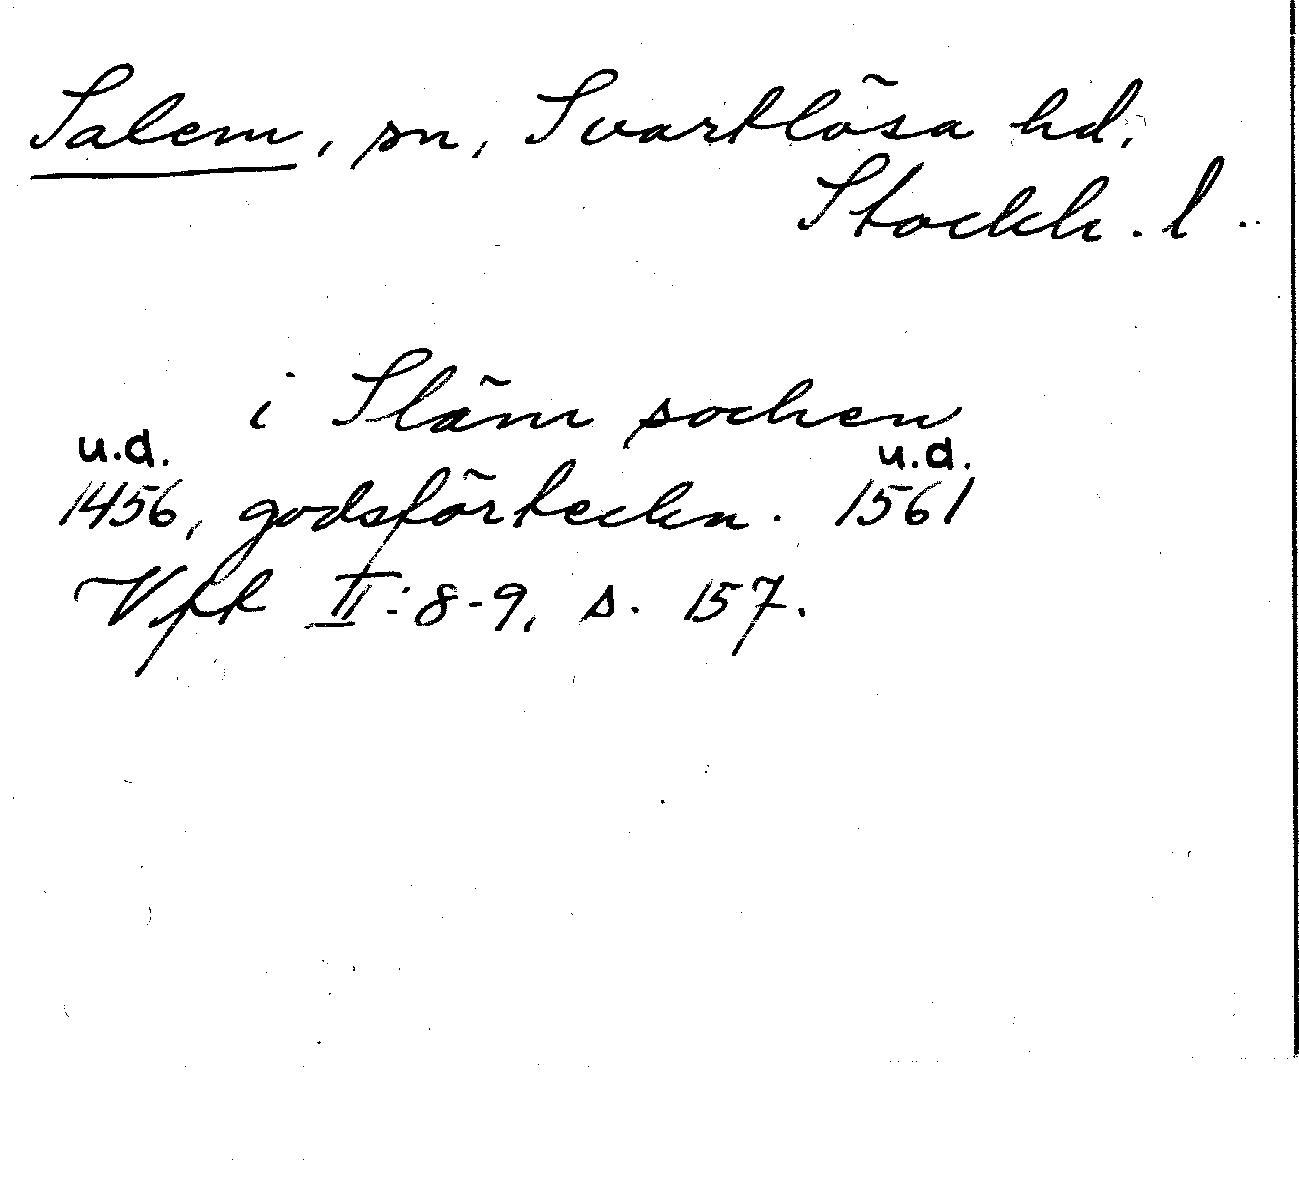 Salem, sn, Svartlösa hd,
Stockh. l.
i Släm sochen
u.d. u.d.
1456, godsförteckn. 1561
Vfk II:8-9, s. 157.